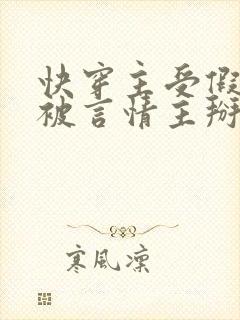 快穿主受假
被言情主掰
寒風凜